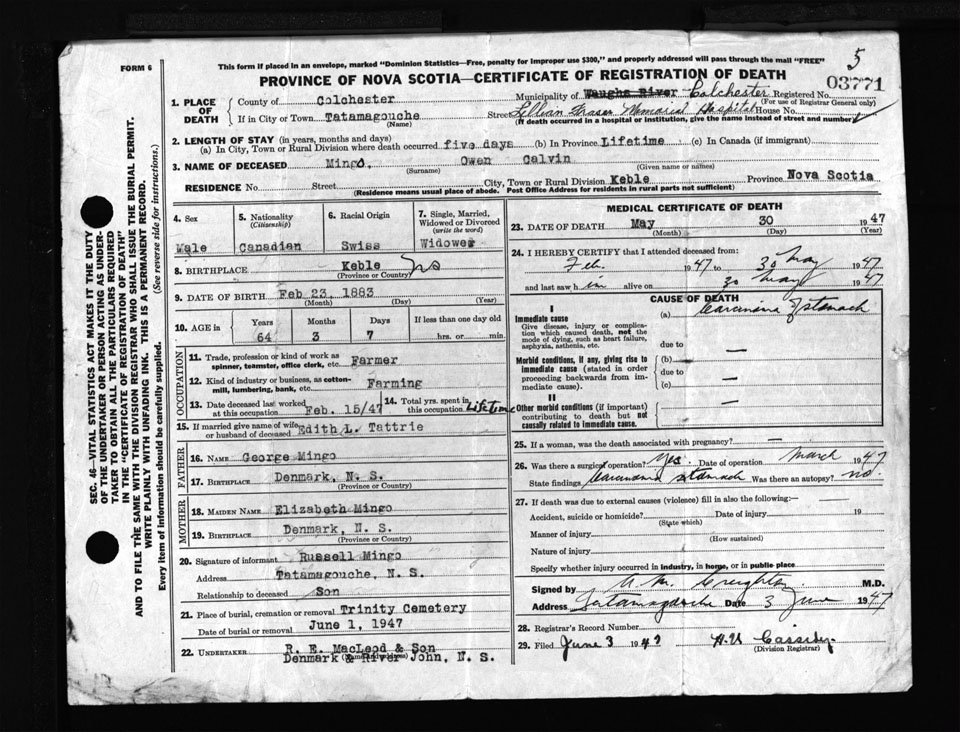 FORM 6
This form if placed in an envelope, marked "Dominion Statistics—Free, penalty for improper use $300," and properly addressed will pass through the mail "FREE"
5
PROVINCE OF NOVA SCOTIA—CERTIFICATE OF REGISTRATION OF DEATH
03771
1. PLACE OF DEATH
County of Colchester Municipality of Waughs River Colchester Registered No.
(For use of Registrar General only)
If in City or Town Tatamagouche Street Lillian Fraser Memorial Hospital House No.
(Name) (If death occurred in a hospital or institution, give the name instead of street and number)
2. LENGTH OF STAY (in years, months and days)
(a) In City, Town or Rural Division where death occurred five days (b) In Province Lifetime (c) In Canada (if immigrant)
3. NAME OF DECEASED Mingo. Owen Calvin
(Surname) (Given name or names)
RESIDENCE No. Street City, Town or Rural Division Keble Province Nova Scotia
(Residence means usual place of abode. Post Office Address for residents in rural parts not sufficient)
4. Sex
Male
5. Nationality
(Citizenship)
Canadian
6. Racial Origin
Swiss
7. Single, Married, Widowed or Divorced
(write the word)
Widower
8. BIRTHPLACE Keble NS
(Province or Country)
9. DATE OF BIRTH Feb 23, 1883
(Month) (Day) (Year)
10. AGE in
Years Months Days If less than one day old
64 3 7 hrs. or min.
OCCUPATION
11. Trade, profession or kind of work as spinner, teamster, office clerk, etc. Farmer
12. Kind of industry or business, as cotton-mill, lumbering, bank, etc. Farming
13. Date deceased last worked at this occupation Feb. 15/47
14. Total yrs. spent in this occupation Lifetime
15. If married give name of wife or husband of deceased Edith L. Tattrie
FATHER
16. NAME George Mingo
17. BIRTHPLACE Denmark, N. S.
(Province or Country)
MOTHER
18. MAIDEN NAME Elizabeth Mingo
19. BIRTHPLACE Denmark, N. S.
(Province or Country)
20. Signature of informant Russell Mingo
Address Tatamagouche, N. S.
Relationship to deceased Son
21. Place of burial, cremation or removal Trinity Cemetery
Date of burial or removal June 1, 1947
22. UNDERTAKER R. E. MacLeod & Son
Denmark & River John, N. S.
MEDICAL CERTIFICATE OF DEATH
23. DATE OF DEATH May 30 1947
(Month) (Day) (Year)
24. I HEREBY CERTIFY that I attended deceased from:
Feb. 1947 to 30 May 1947
and last saw him alive on 30 May 1947
CAUSE OF DEATH
I
Immediate cause (a) Carcinoma of stomach
Give disease, injury or complication which caused death, not the mode of dying, such as heart failure, asphyxia, asthenia, etc.
due to —
Morbid conditions, if any, giving rise to immediate cause (stated in order proceeding backwards from immediate cause).
(b)
due to
(c) —
II
Other morbid conditions (if important) contributing to death but not causally related to immediate cause. —
25. If a woman, was the death associated with pregnancy? —
26. Was there a surgical operation? Yes. Date of operation March 1947
State findings Carcinoma Stomach Was there an autopsy? no
27. If death was due to external causes (violence) fill in also the following:—
Accident, suicide or homicide? Date of injury 19
(State which)
Manner of injury
(How sustained)
Nature of injury
Specify whether injury occurred in industry, in home, or in public place
Signed by A. M. Creighton M.D.
Address Tatamagouche Date 3 June 1947
28. Registrar's Record Number
29. Filed June 3 1947 Cassidy
(Division Registrar)
SEC. 46—VITAL STATISTICS ACT MAKES IT THE DUTY
OF THE UNDERTAKER OR PERSON ACTING AS UNDER-
TAKER TO OBTAIN ALL THE PARTICULARS REQUIRED
IN THE "CERTIFICATE OF REGISTRATION OF DEATH"
AND TO FILE THE SAME WITH THE DIVISION REGISTRAR WHO SHALL ISSUE THE BURIAL PERMIT.
WRITE PLAINLY WITH UNFADING INK. THIS IS A PERMANENT RECORD.
Every item of Information should be carefully supplied. (See reverse side for instructions.)